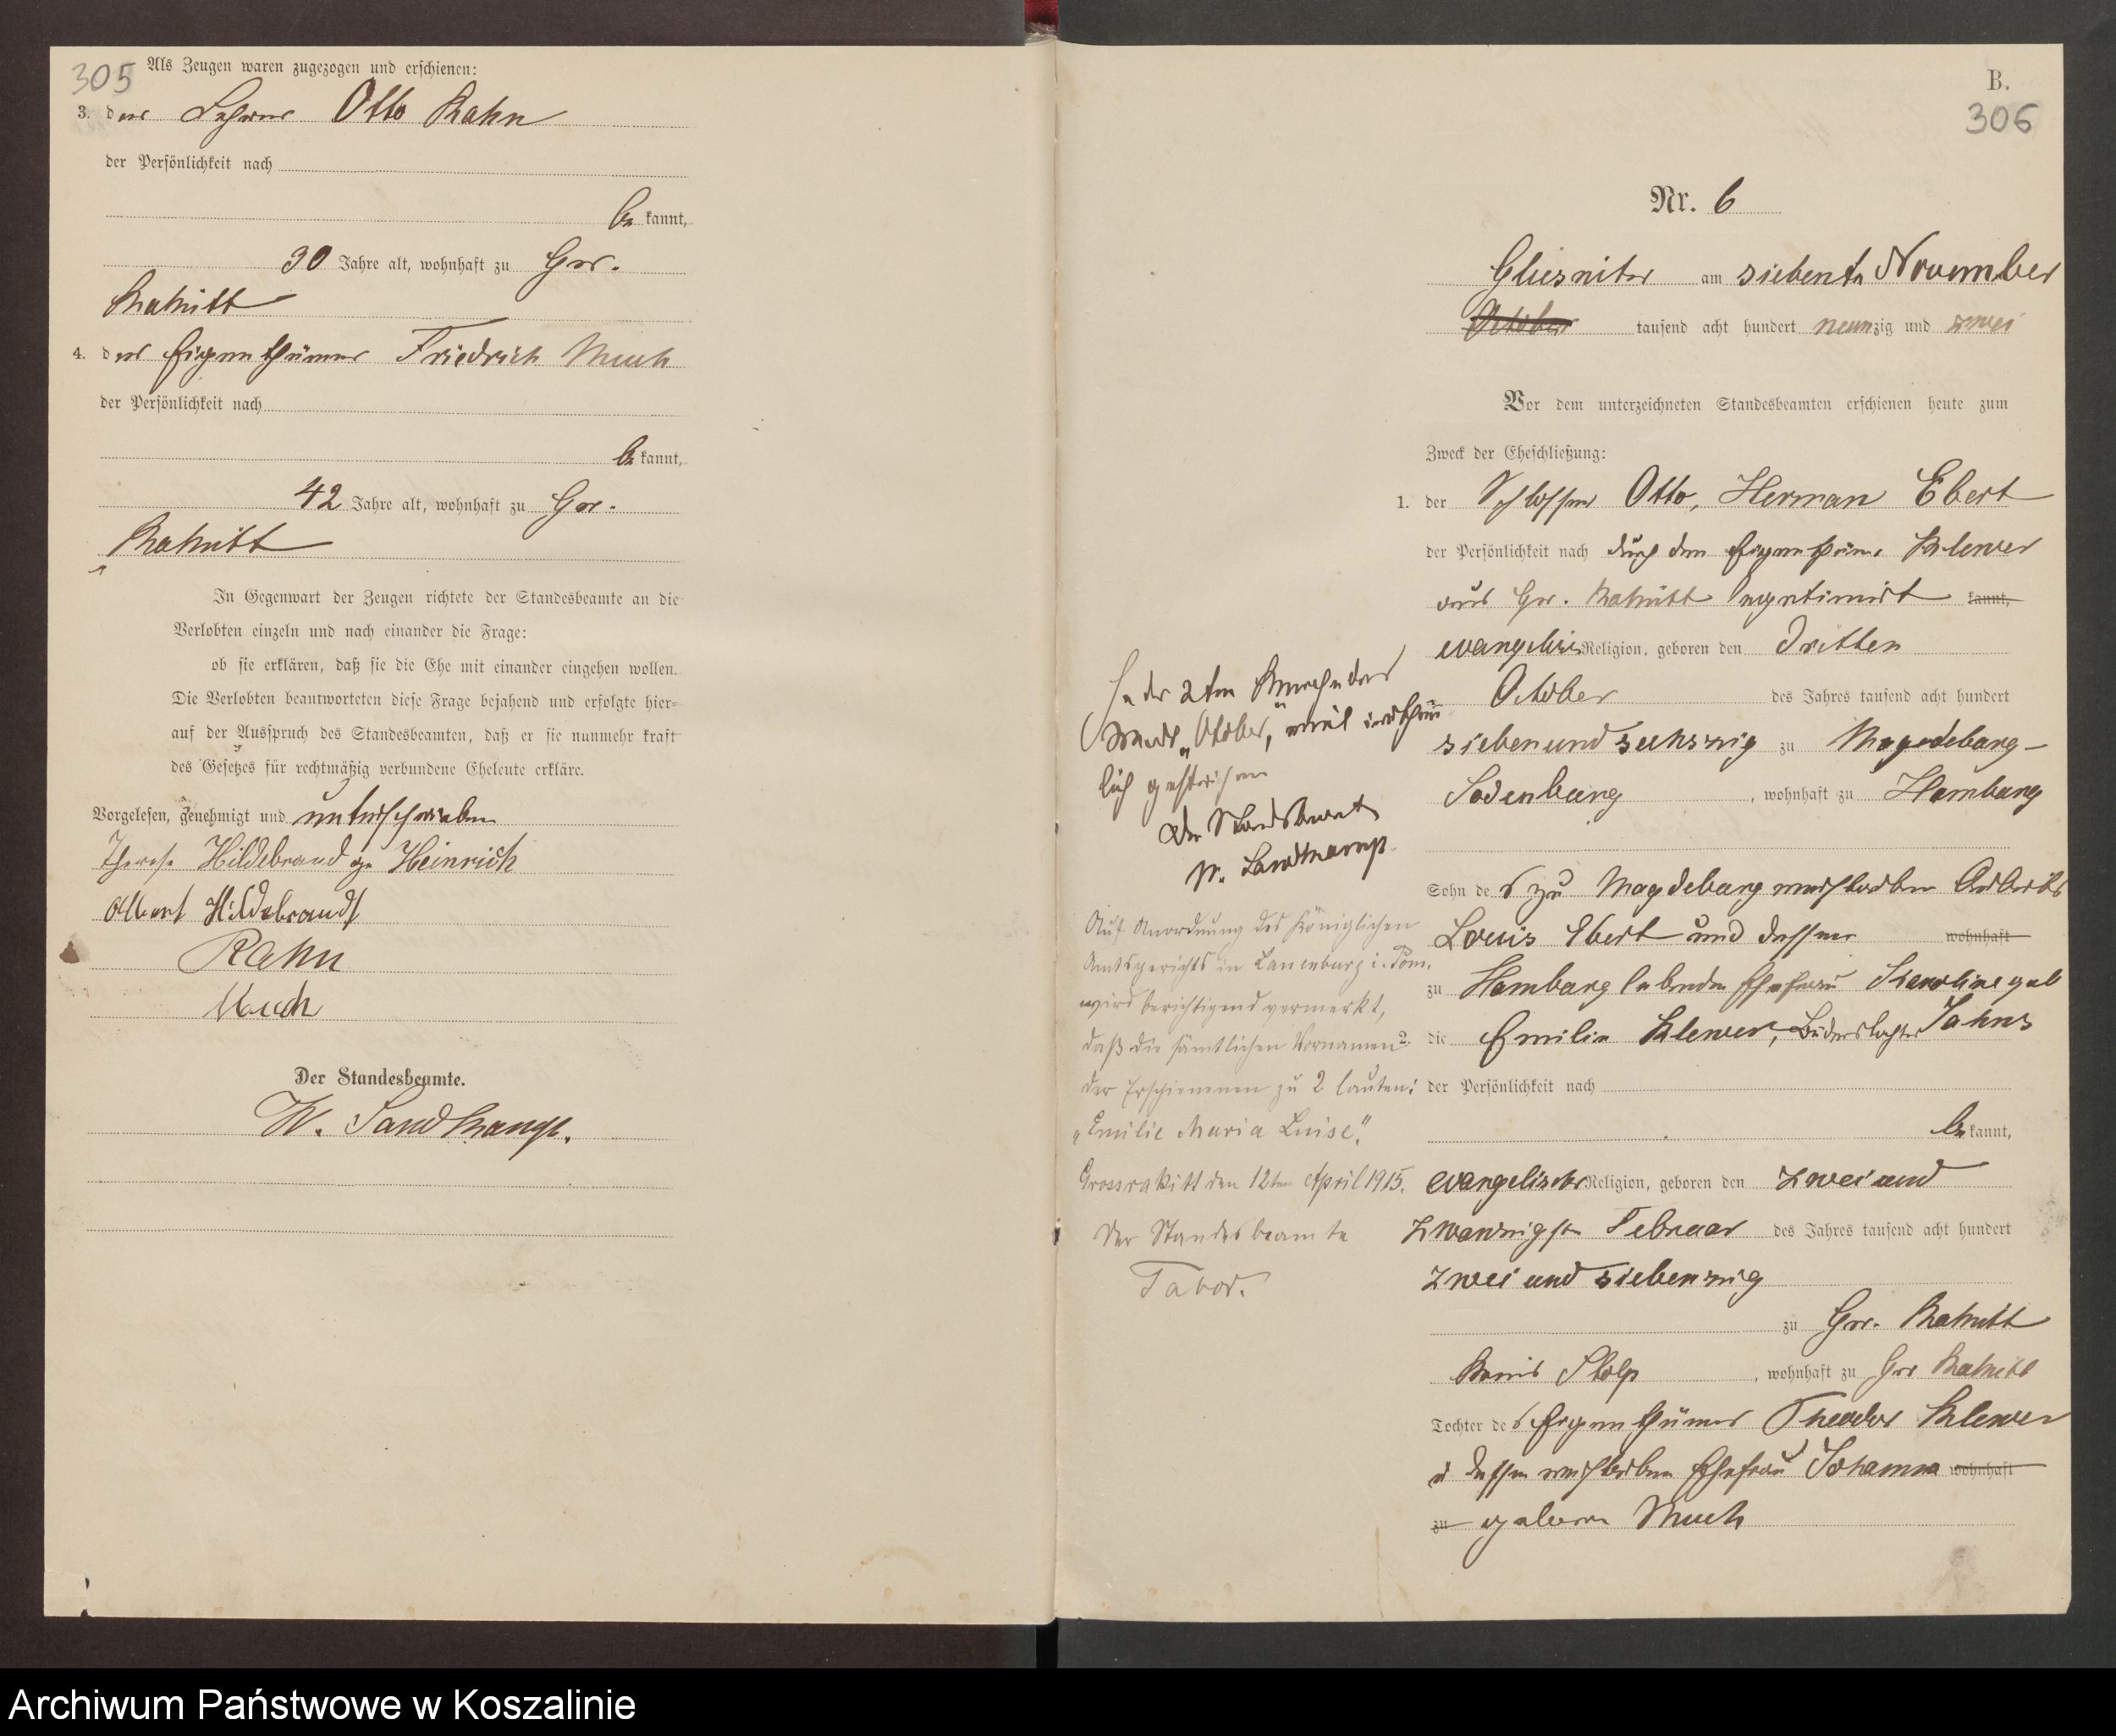 305
Als Zeugen waren zugezogen und erschienen:
3. der Lehrer Otto Rahn
der Persönlichkeit nach
be kannt,
30 Jahre alt, wohnhaft zu Gr.
Rakitt
4. der Eigenthümer Friedrich Much
der Persönlichkeit nach
be kannt,
42 Jahre alt, wohnhaft zu Gr.
Rakitt
In Gegenwart der Zeugen richtete der Standesbeamte an die
Verlobten einzeln und nach einander die Frage:
ob sie erklären, daß sie die Ehe mit einander eingehen wollen.
Die Verlobten beantworteten diese Frage bejahend und erfolgte hier-
auf der Ausspruch des Standesbeamten, daß er sie nunmehr kraft
des Gesetzes für rechtmäßig verbundene Eheleute erkläre.
Vorgelesen, genehmigt und unterschrieben
Therese Hildebrand ge Heinrich
Albert Hildebrandt
Rahn
Much
Der Standesbeamte.
W. Sandkamp.
B.
306
Nr. 6
Gliesnitz am siebenten November
October tausend acht hundert neunzig und zwei
Vor dem unterzeichneten Standesbeamten erschienen heute zum
Zweck der Eheschließung:
1. der Schlosser Otto, Herman Ebert
der Persönlichkeit nach durch den Eigenthümer Klewer
aus Gr. Rakitt legetimirt kannt,
evangelischer Religion, geboren den dritten
October des Jahres tausend acht hundert
siebenundsechszig zu Magdeburg-
Sudenburg, wohnhaft zu Hamburg
Sohn des zu Magdeburg verstorben Arbeiters
Louis Ebert und dessen wohnhaft
zu Hamburg lebenden Ehefrau Karoline geb
Jahns
2. die Emilie Klewer, Büdnertochter
der Persönlichkeit nach
be kannt,
evangelischer Religion, geboren den zwei und
zwanzigsten Februar des Jahres tausend acht hundert
zwei und siebenzig
zu Gr. Rakitt
Kreis Stolp, wohnhaft zu Gr Rakitt
Tochter des Eigenthümers Theodor Klewer
u dessen verstorben Ehefrau Johanna wohnhaft
zu geborene Much
In der 2ten Reihe das
Wort „October" weil irrthüm
lich gestrichen
Der Standesbeamte
W. Sandkamp.
Auf Anordnung des Königlichen
Amtsgerichts in Lauenburg i. Pom.
wird berichtigend vermerkt,
daß die sämtlichen Vornamen
der Erschienenen zu 2 lauten:
„Emilie Maria Luise".
Grossrakitt den 12ten April 1915.
Der Standesbeamte
Tabor.
Archiwum Państwowe w Koszalinie